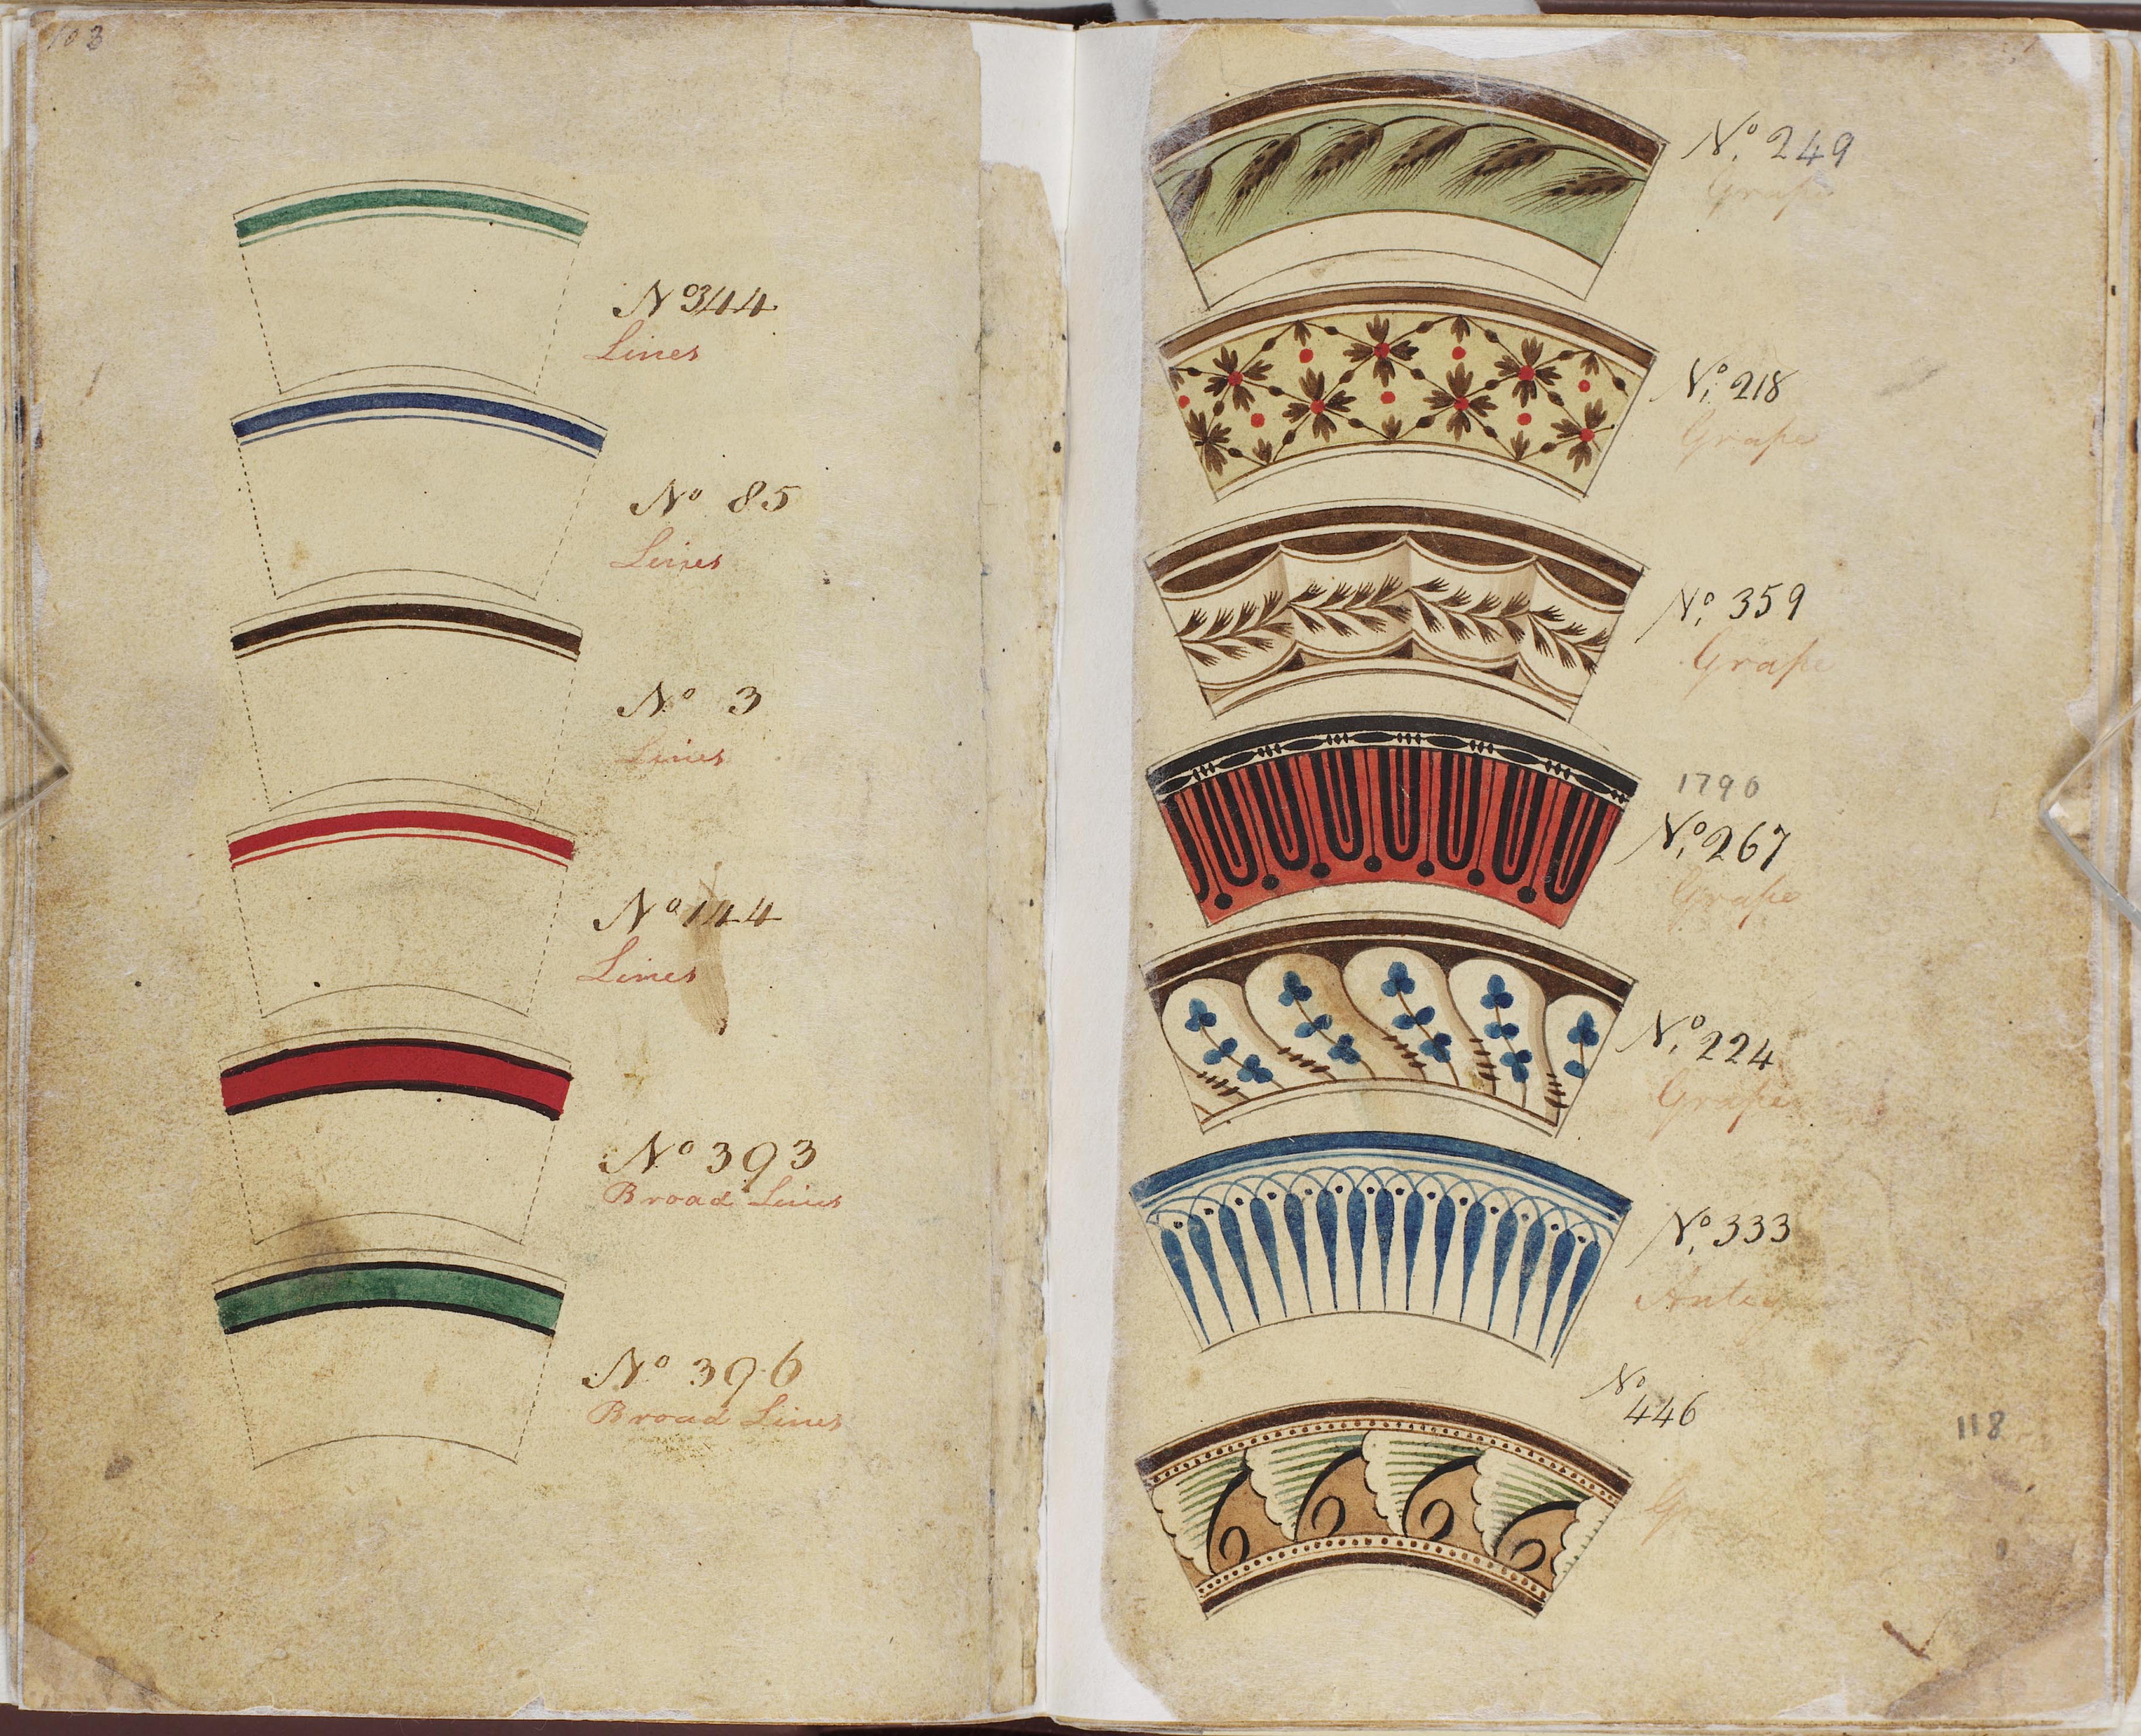 103
No 344
Lines
No 85
Lines
No 3
Lines
No 144
Lines
No 393
Broad Lines
No 396
Broad Lines
No. 249
Grape
No. 218
Grape
No. 359
Grape
1790
No. 267
Grape
No. 224
Grape
No. 333
No
446
118